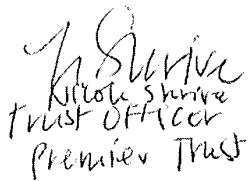 N Shrive
Nicole Shrive
Trust Officer
Premier Trust